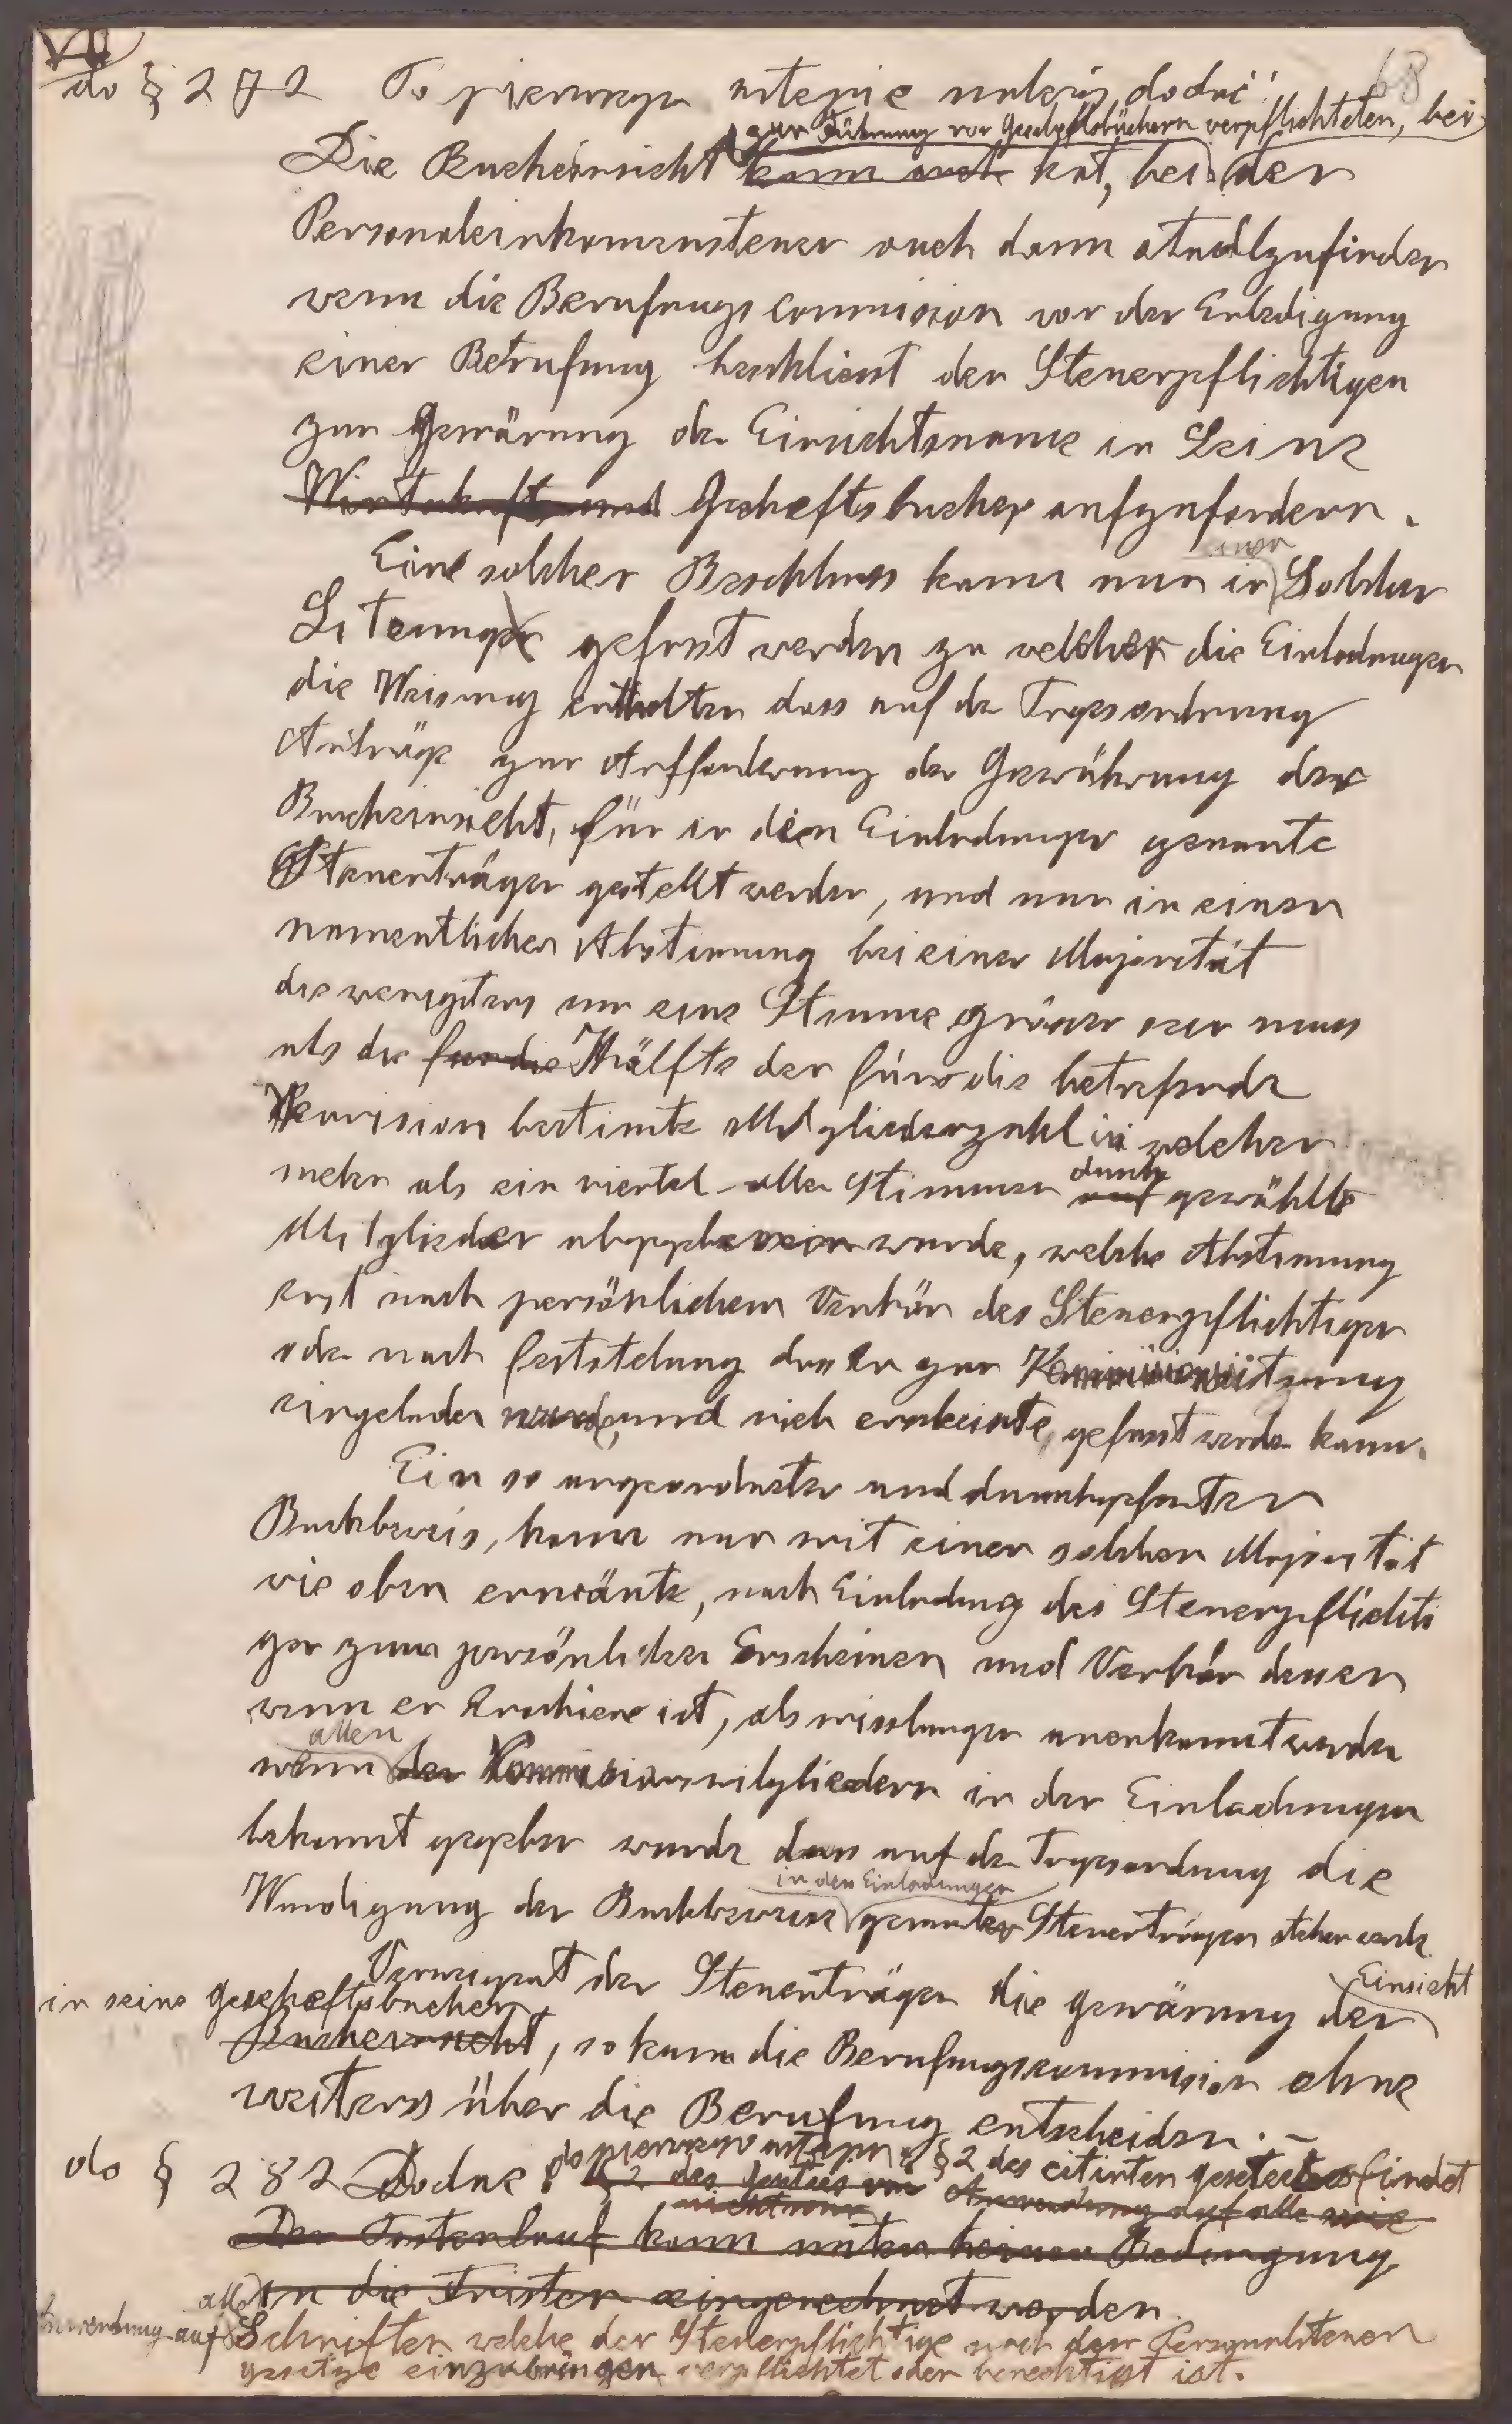 VII
68
do § 272 Po pierwszym ustępie należy dodać:
zur Führung von Geschäftsbüchern verpflichteten, bei
Die Bucheinsicht kann auch hat, bei der
Personaleinkomenstener auch dann stadtzufinden
wenn die Berufungs commision vor der Erledigung
einer Betrufung beschliesst den Stenerpflichtigen
zur Gewärung der Einsichtsname in Seine
Wirtschafts und Gescheftsbucher aufzufordern.
Eine solcher Beschluss kann nur in einer Solchen
Sitzung gefasst werden zu welcher die Einladungen
die Weisung enthalten dass auf der Tagesordnung
Anträge zur Aufforderung der Gewährung der
Bucheinsicht, für in den Einladungen genannte
Steuerträger gestellt werden, und nur in einer
namentlichen Abstimung bei einer Majorität
die wenigstens um eine Stimme grösser sein muss
als die fur die Hälfte der für die betrefende
bestimte Mitgliederzahl in welcher
mehr als ein viertel aller Stimmen durch gewählte
Mitglieder abgegeben wurde, welche Abstimung
erst nach persönlichem Verhör des Stenerpflichtigen
oder nach feststelung dass er zur Kommissionssitzung
eingeladen wurde, und nich erscheinte, gefasst werden kann.
Ein so angeordneter und durchgefürter
Buchbeweis, kann nur mit einer solchen Majorität
wie oben erwänte, nach Einladung des Stenerpflichti
gen zum persönlichen Erscheinen und Verhör dessen
wenn er Erschienen ist, als misslungen anerkannt werden
wenn allen den Kommisionsmitgliedern in der Einladungen
bekannt gegeben wurde dass auf der Tagesordnung die
Wurdigung der Buchbeweise in den Einladungen genanter Steuerträgern stehen werde
Verweigert der Steuerträger die gewärung der Einsicht
in seine gescheftsbucher
Bucheinsicht, so kann die Berufungskommision ohne
weiteres über die Berufung entscheiden. –
do § 282 Dodać do pierwszego ustępu § 2 des citirten gesetzes findet
Anwendung auf alle wie
Der Postenlauf kann unter keiner Bedingung
in die Fristen eingerechnet werden
Anwendung auf alle Schriften welche der Steuerpflichtige nach dem Personalstener
gesetze einzubringen verpflichtet oder berechtigt ist.